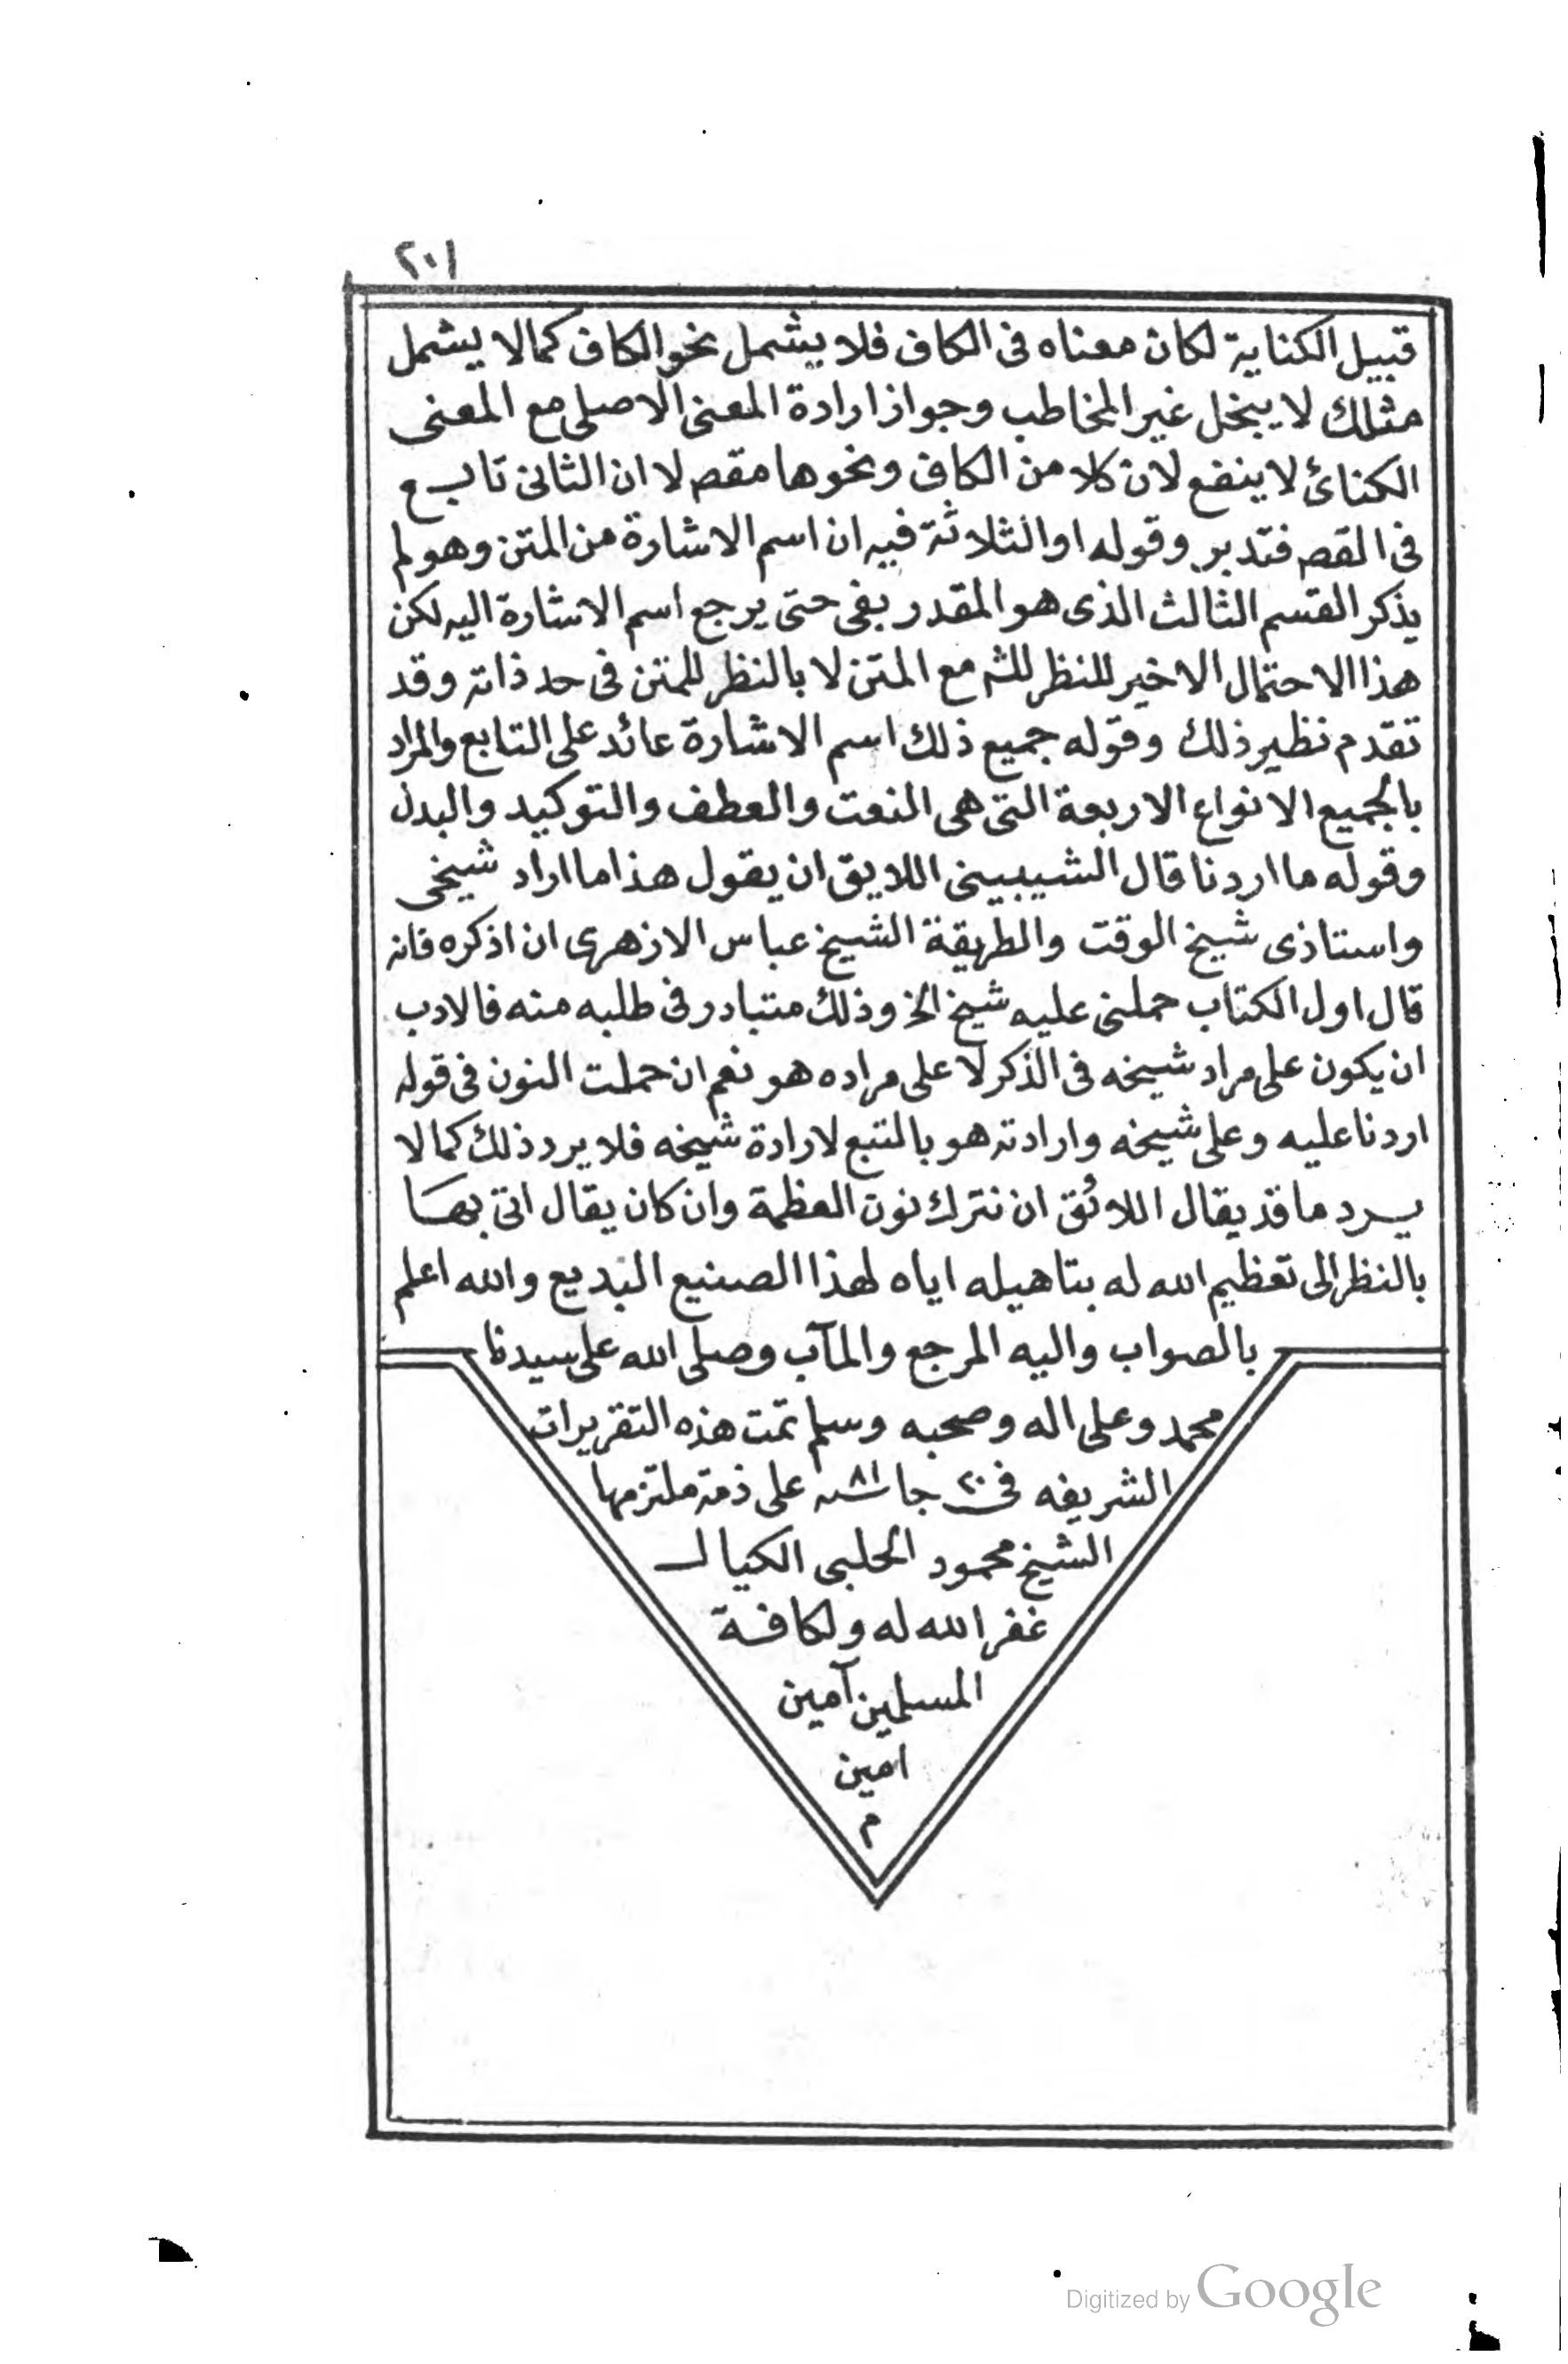 ٢٠١
قبيل الكناية لكان معناه فى الكاف فلا يشمل نحو الكاف كما لا يشمل
مثلك لا يبخل غير المخاطب وجواز ارادة المعنى الاصلى مع المعنى
الكنائ لا ينفع لان كلا من الكاف ونحوها مقص لا ان الثانى تابع
فى القص فتدبر وقوله او الثلاثة فيه ان اسم الاشارة من المتن وهو لم
يذكر القسم الثالث الذى هو المقدر بفى حتى يرجع اسم الاشارة اليه لكن
هذا الاحتمال الاخير للنظر للشه مع المتن لا بالنظر للمتن فى حد ذاته وقد
تقدم نظير ذلك وقوله جميع ذلك اسم الاشارة عائد على التابع والمراد
بالجميع الانواع الاربعة التى هى النعت والعطف والتوكيد والبدل
وقوله ما اردنا قال الشيبينى اللايق ان يقول هذا ما اراد شيخى
واستاذى شيخ الوقت والطريقة الشيخ عباس الازهرى ان اذكره فانه
قال اول الكتاب حملنى عليه شيخ الخ وذلك متبادر فى طلبه منه فالادب
ان يكون على مراد شيخه فى الذكر لا على مراده هو نعم ان حملت النون فى قوله
اردنا عليه وعلى شيخه وارادته هو بالتبع لارادة شيخه فلا يرد ذلك كما لا
يرد ما قد يقال اللائق ان نترك نون العظمة وان كان يقال اتى بها
بالنظر الى تعظيم الله له بتاهيله اياه لهذا الصنيع البديع والله اعلم
بالصواب واليه المرجع والمآب وصلى الله على سيدنا
محمد وعلى اله وصحبه وسلم تمت هذه التقريرات
الشريفه فى ٢٠ جا سنه ٨١ على ذمة ملتزمها
الشيخ محمود الحلبى الكيال
غفر الله له ولكافة
المسلمين آمين
امين
م
Digitized by Google